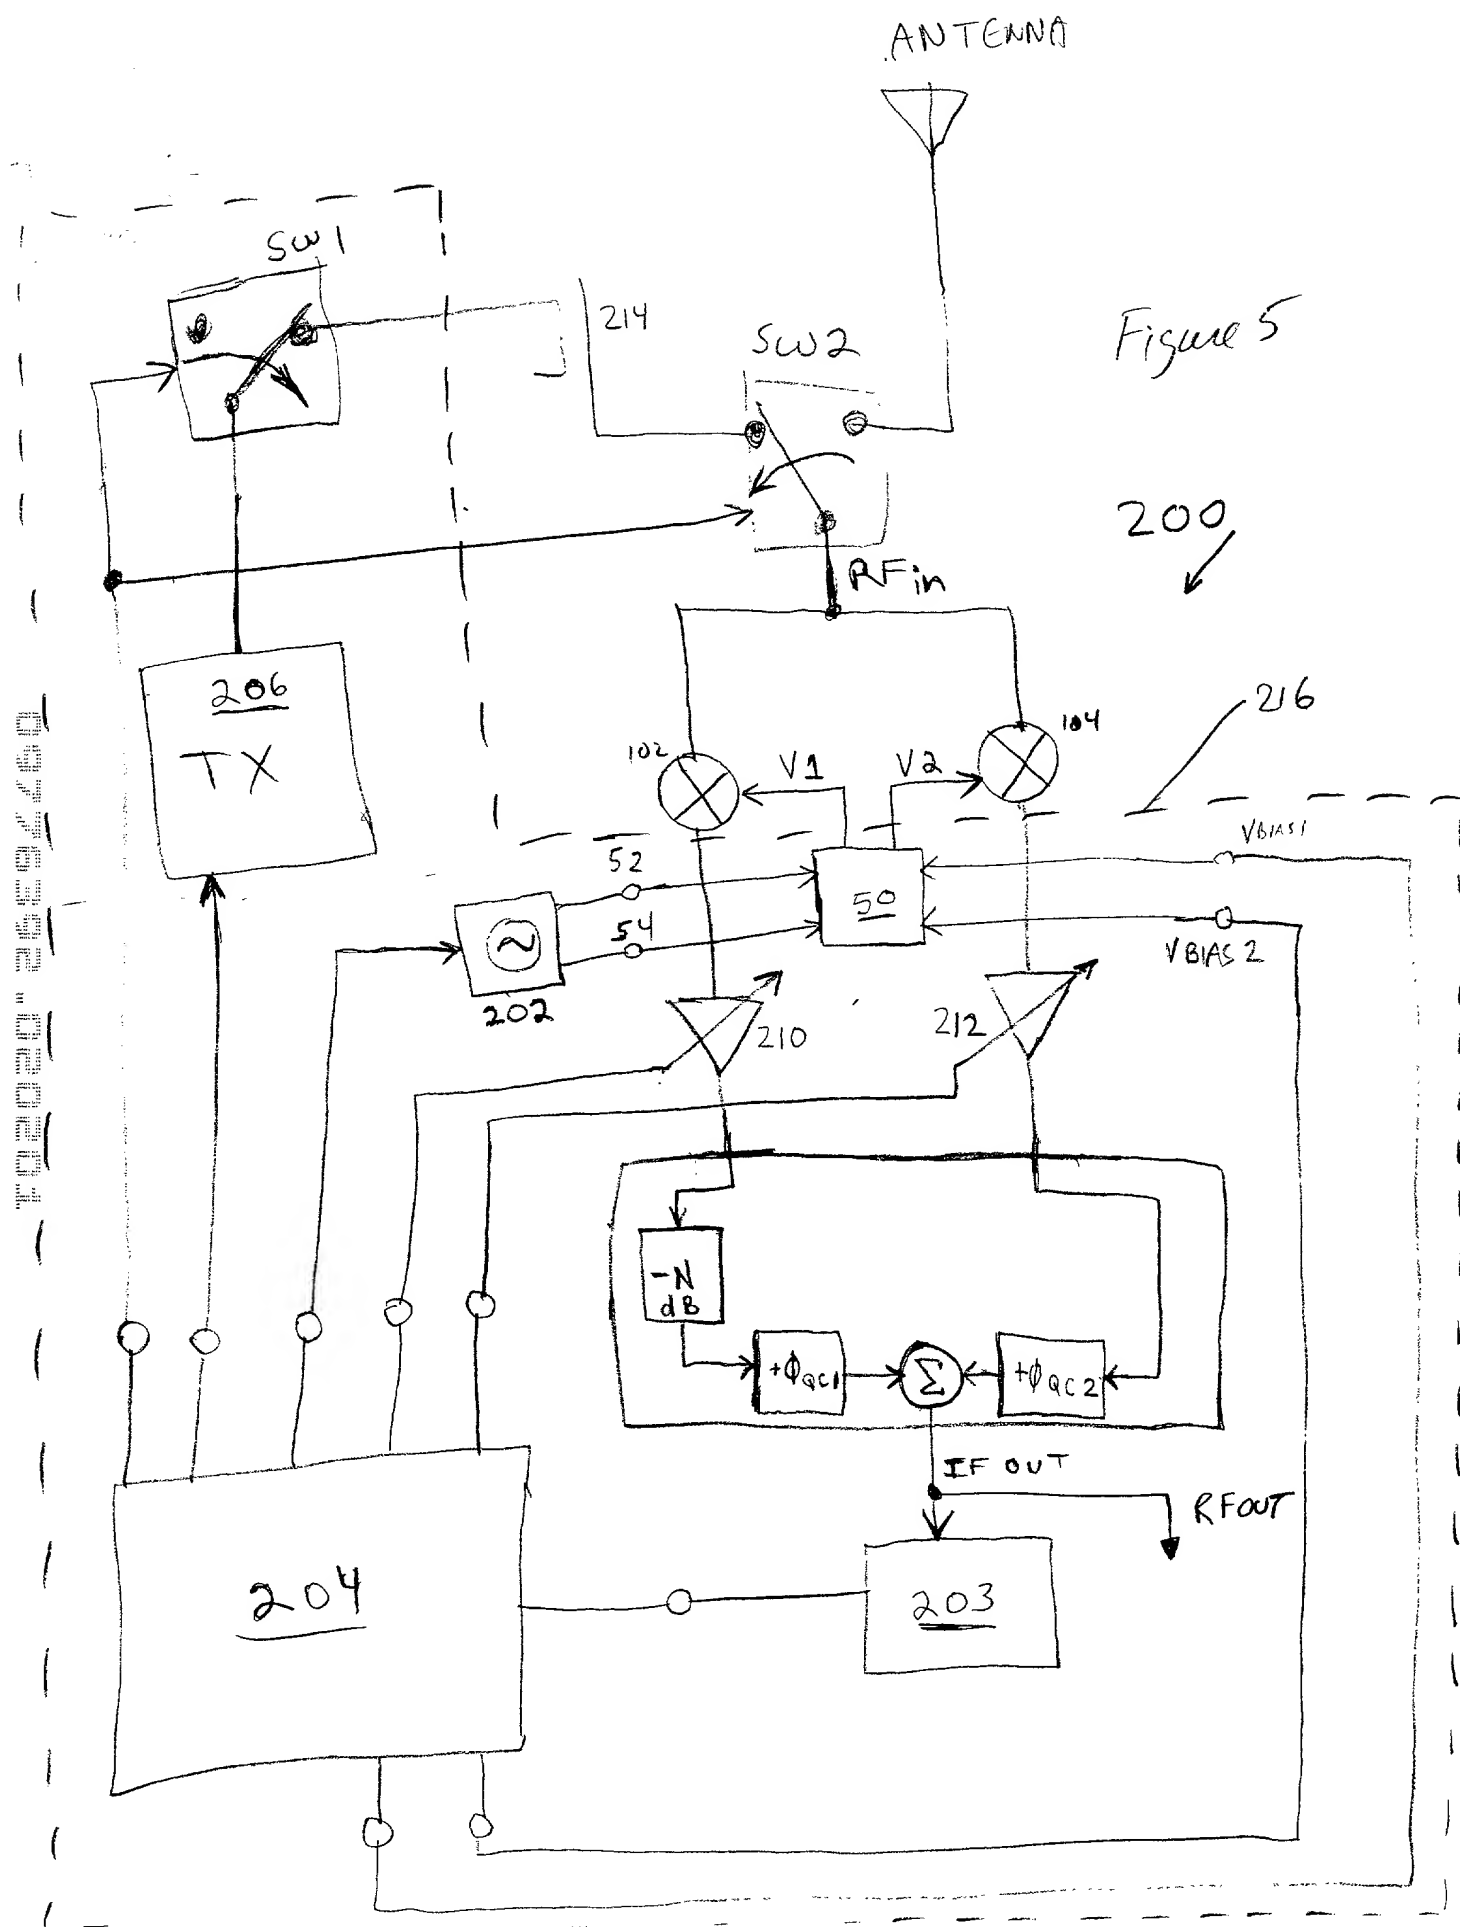 ANTENNA
SW1
214
SW2
Figure 5
200
RFin
206
TX
216
102
104
V1
V2
VBIAS1
52
50
54
VBIAS 2
202
210
212
-N
dB
+ϕQC1
Σ
+ϕQC2
IF OUT
RFOUT
204
203